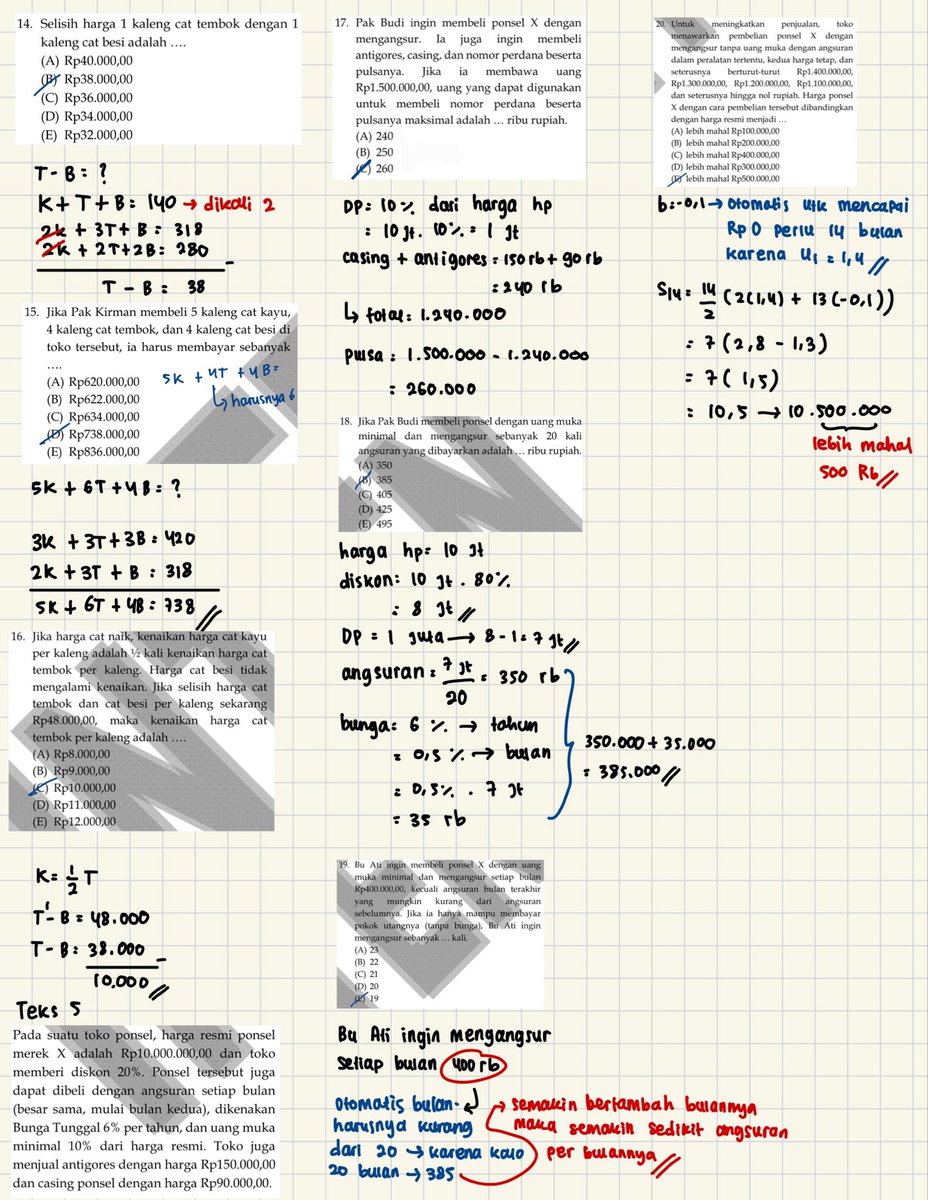 14. Selisih harga 1 kaleng cat tembok dengan 1
kaleng cat besi adalah ….
(A) Rp40.000,00
(B) Rp38.000,00
(C) Rp36.000,00
(D) Rp34.000,00
(E) Rp32.000,00
T - B = ?
K + T + B = 140 → dikali 2
2k + 3T + B = 318
2k + 2T + 2B = 280
-
T - B = 38
15. Jika Pak Kirman membeli 5 kaleng cat kayu,
4 kaleng cat tembok, dan 4 kaleng cat besi di
toko tersebut, ia harus membayar sebanyak
….
(A) Rp620.000,00
(B) Rp622.000,00
(C) Rp634.000,00
(D) Rp738.000,00
(E) Rp836.000,00
5K + 4T + 4B =
↳ harusnya 6
5K + 6T + 4B = ?
3K + 3T + 3B = 420
2K + 3T + B = 318
5K + 6T + 4B = 738 //
16. Jika harga cat naik, kenaikan harga cat kayu
per kaleng adalah ½ kali kenaikan harga cat
tembok per kaleng. Harga cat besi tidak
mengalami kenaikan. Jika selisih harga cat
tembok dan cat besi per kaleng sekarang
Rp48.000,00, maka kenaikan harga cat
tembok per kaleng adalah ….
(A) Rp8.000,00
(B) Rp9.000,00
(C) Rp10.000,00
(D) Rp11.000,00
(E) Rp12.000,00
K = 1/2 T
T' - B = 48.000
T - B = 38.000
-
10.000 //
Teks 5
Pada suatu toko ponsel, harga resmi ponsel
merek X adalah Rp10.000.000,00 dan toko
memberi diskon 20%. Ponsel tersebut juga
dapat dibeli dengan angsuran setiap bulan
(besar sama, mulai bulan kedua), dikenakan
Bunga Tunggal 6% per tahun, dan uang muka
minimal 10% dari harga resmi. Toko juga
menjual antigores dengan harga Rp150.000,00
dan casing ponsel dengan harga Rp90.000,00.
17. Pak Budi ingin membeli ponsel X dengan
mengangsur. Ia juga ingin membeli
antigores, casing, dan nomor perdana beserta
pulsanya. Jika ia membawa uang
Rp1.500.000,00, uang yang dapat digunakan
untuk membeli nomor perdana beserta
pulsanya maksimal adalah … ribu rupiah.
(A) 240
(B) 250
(C) 260
DP = 10 % dari harga hp
= 10 jt . 10% = 1 jt
casing + antigores = 150 rb + 90 rb
= 240 rb
↳ total : 1.240.000
pulsa : 1.500.000 - 1.240.000
= 260.000
18. Jika Pak Budi membeli ponsel dengan uang muka
minimal dan mengangsur sebanyak 20 kali
angsuran yang dibayarkan adalah … ribu rupiah.
(A) 350
(B) 385
(C) 405
(D) 425
(E) 495
harga hp = 10 jt
diskon : 10 jt . 80%
= 8 jt //
DP = 1 juta → 8 - 1 = 7 jt //
angsuran = 7 jt / 20 = 350 rb
bunga : 6 % → tahun
= 0,5 % → bulan
= 0,5% . 7 jt
= 35 rb
350.000 + 35.000
= 385.000 //
19. Bu Ati ingin membeli ponsel X dengan uang
muka minimal dan mengangsur setiap bulan
Rp400.000,00, kecuali angsuran bulan terakhir
yang mungkin kurang dari angsuran
sebelumnya. Jika ia hanya mampu membayar
pokok utangnya (tanpa bunga), Bu Ati ingin
mengangsur sebanyak … kali.
(A) 23
(B) 22
(C) 21
(D) 20
(E) 19
Bu Ati ingin mengangsur
setiap bulan 400 rb
otomatis bulan-
harusnya kurang
dari 20 → karena kalo
20 bulan → 385
semakin bertambah bulannya
maka semakin sedikit angsuran
per bulannya //
20. Untuk meningkatkan penjualan, toko
menawarkan pembelian ponsel X dengan
mengangsur tanpa uang muka dengan angsuran
dalam peralatan tertentu, kedua harga tetap, dan
seterusnya berturut-turut Rp1.400.000,00,
Rp1.300.000,00, Rp1.200.000,00, Rp1.100.000,00,
dan seterusnya hingga nol rupiah. Harga ponsel
X dengan cara pembelian tersebut dibandingkan
dengan harga resmi menjadi …
(A) lebih mahal Rp100.000,00
(B) lebih mahal Rp200.000,00
(C) lebih mahal Rp400.000,00
(D) lebih mahal Rp300.000,00
(E) lebih mahal Rp500.000,00
b = -0,1 → otomatis utk mencapai
Rp 0 perlu 14 bulan
karena u1 = 1,4 //
S14 = 14/2 (2(1,4) + 13(-0,1))
= 7 (2,8 - 1,3)
= 7 (1,5)
= 10,5 → 10.500.000
lebih mahal
500 Rb //